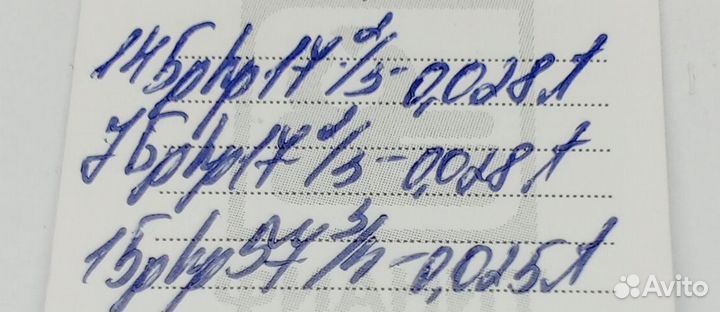 14Бр Кр17 2/3-0,028Л
7Бр Кр17 2/3-0,028Л
1Бр Кр57 3/4-0,025Л
Avito